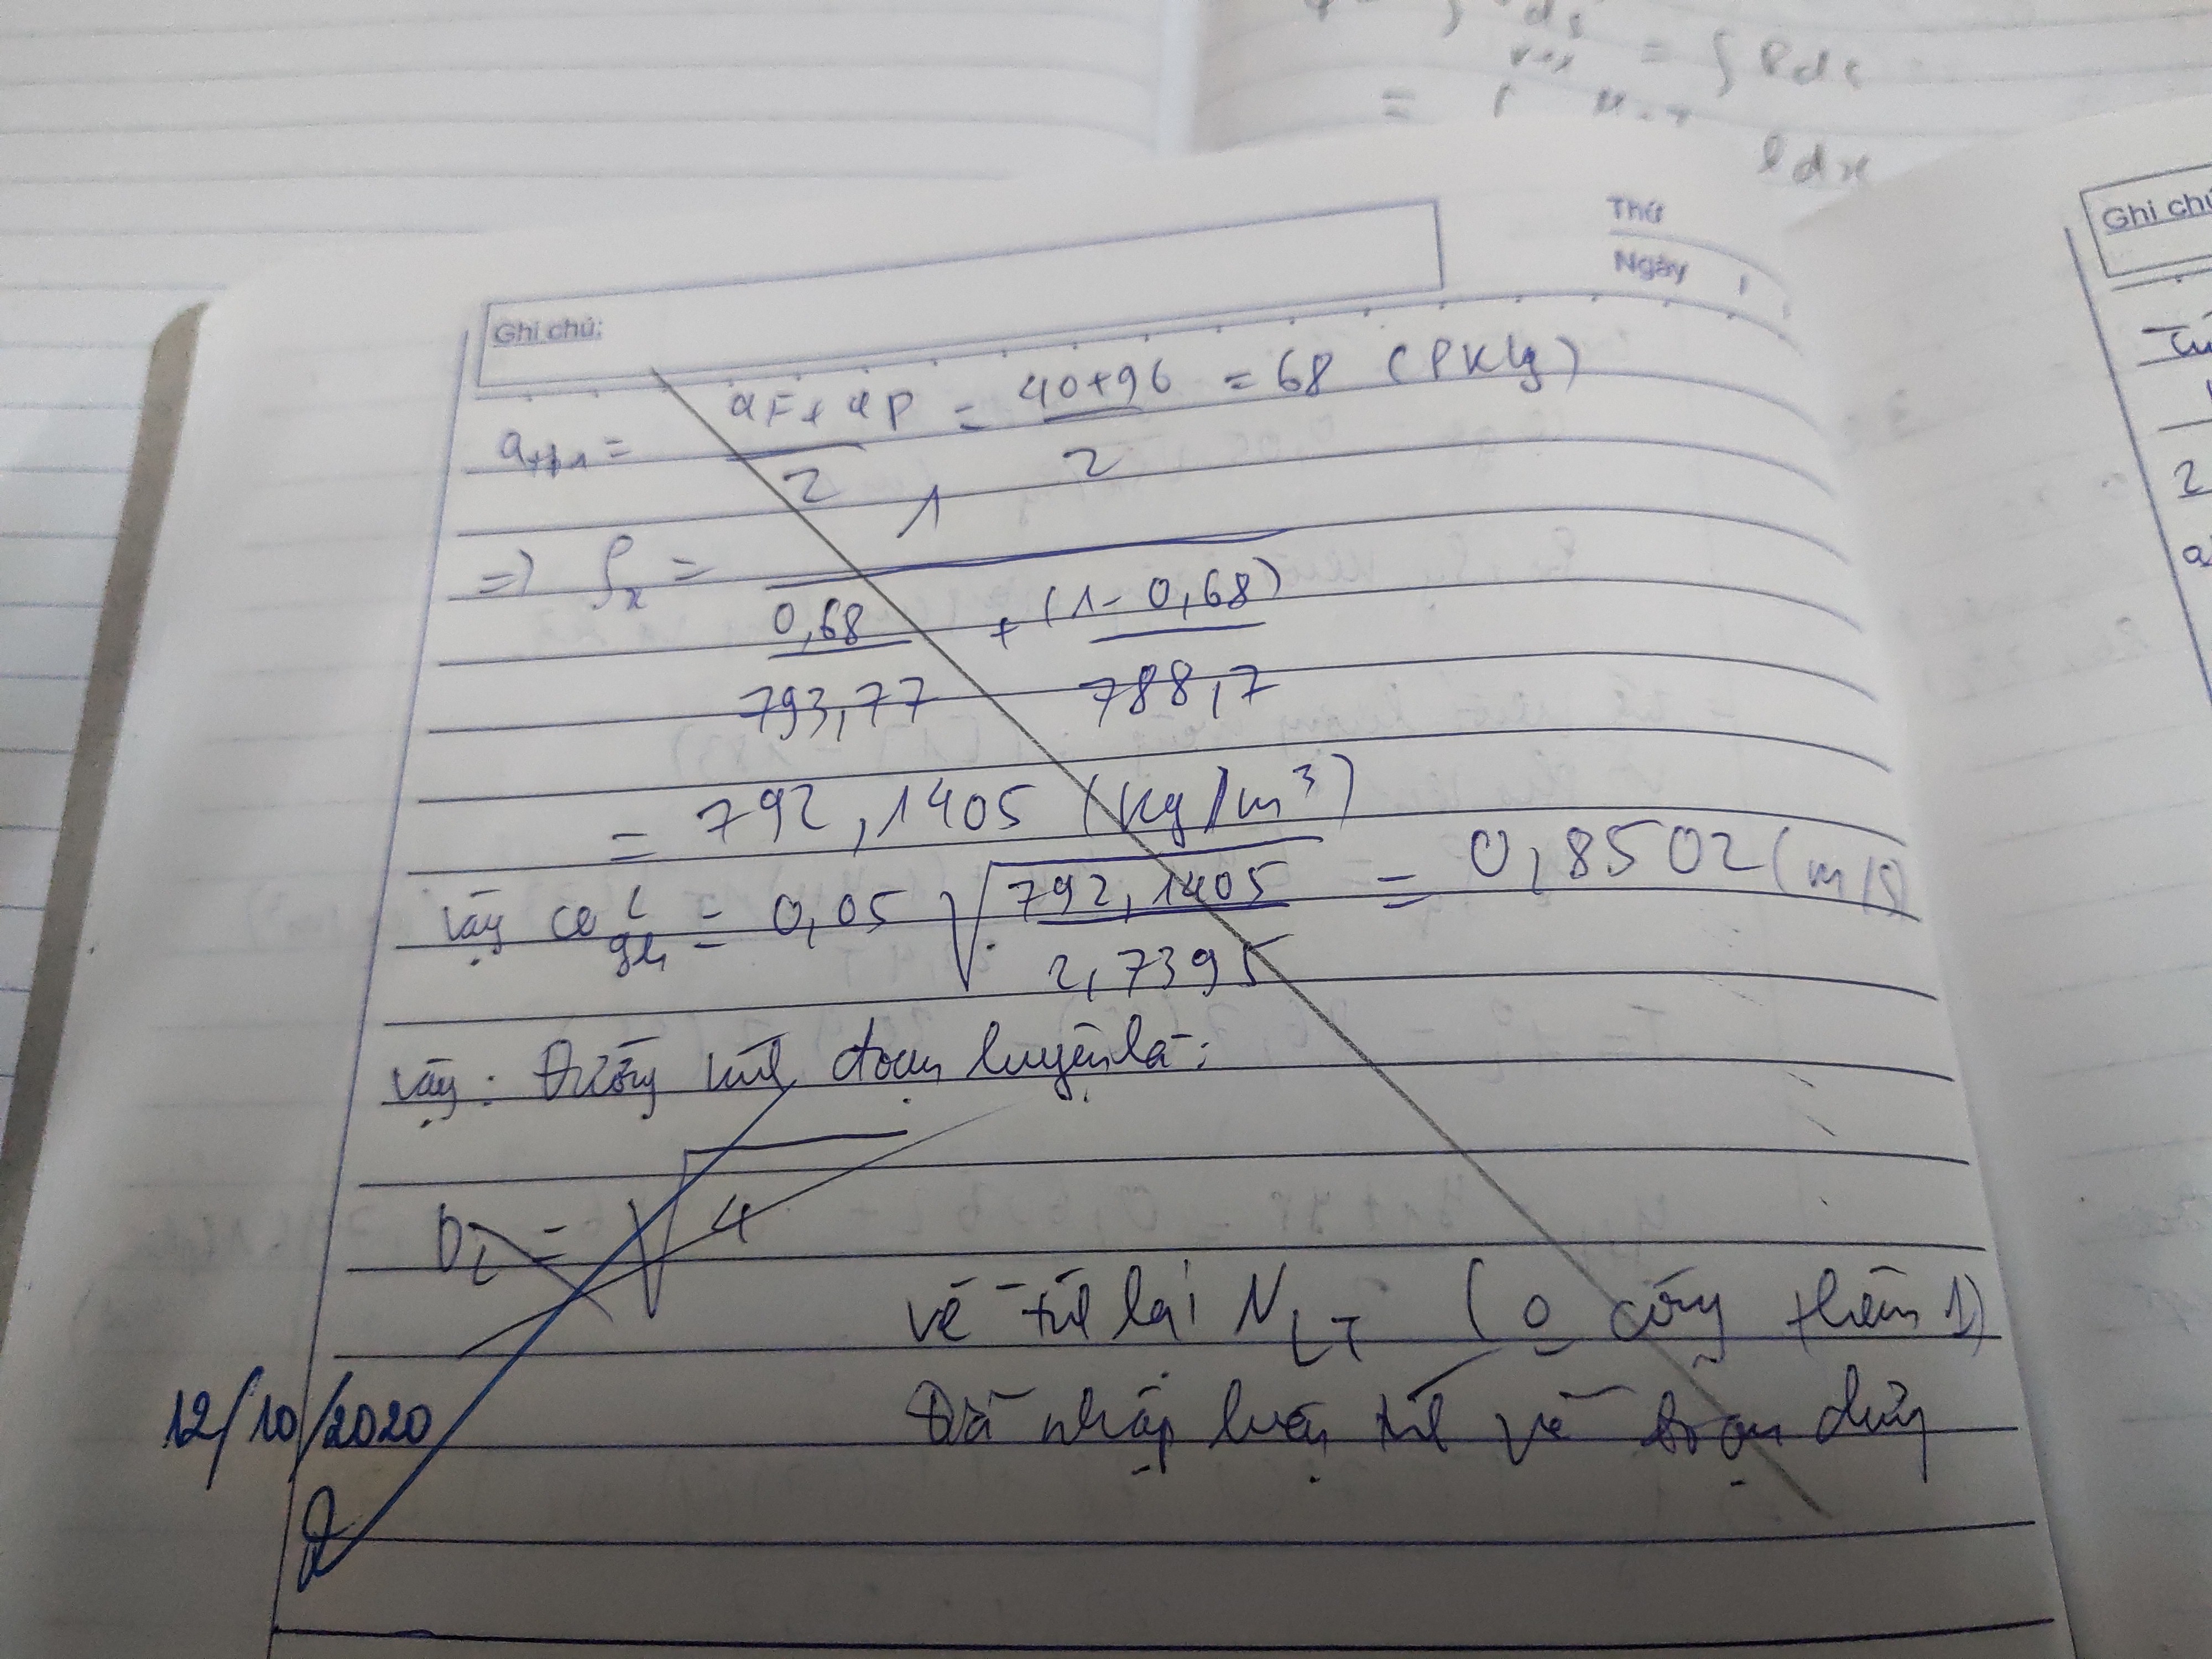 ds = ∫ Pds
=
ldx
Thứ
Ngày
Ghi chú:
Ghi chú
a_tb1 = (aF + aP)/2 = (40+96)/2 = 68 (PKlg)
=) ρx = 1/(0,68/793,77 + (1-0,68)/788,7)
= 792,1405 (kg/m³)
Vậy ω^L_gh = 0,05 √(792,1405/2,7395) = 0,8502 (m/s)
Vậy: Đường kính đoạn luyện là:
D_L = √4
về tính lại N_LT (o cộng thêm 1)
12/10/2020
Đã nhập luyện tính về đoạn chưng